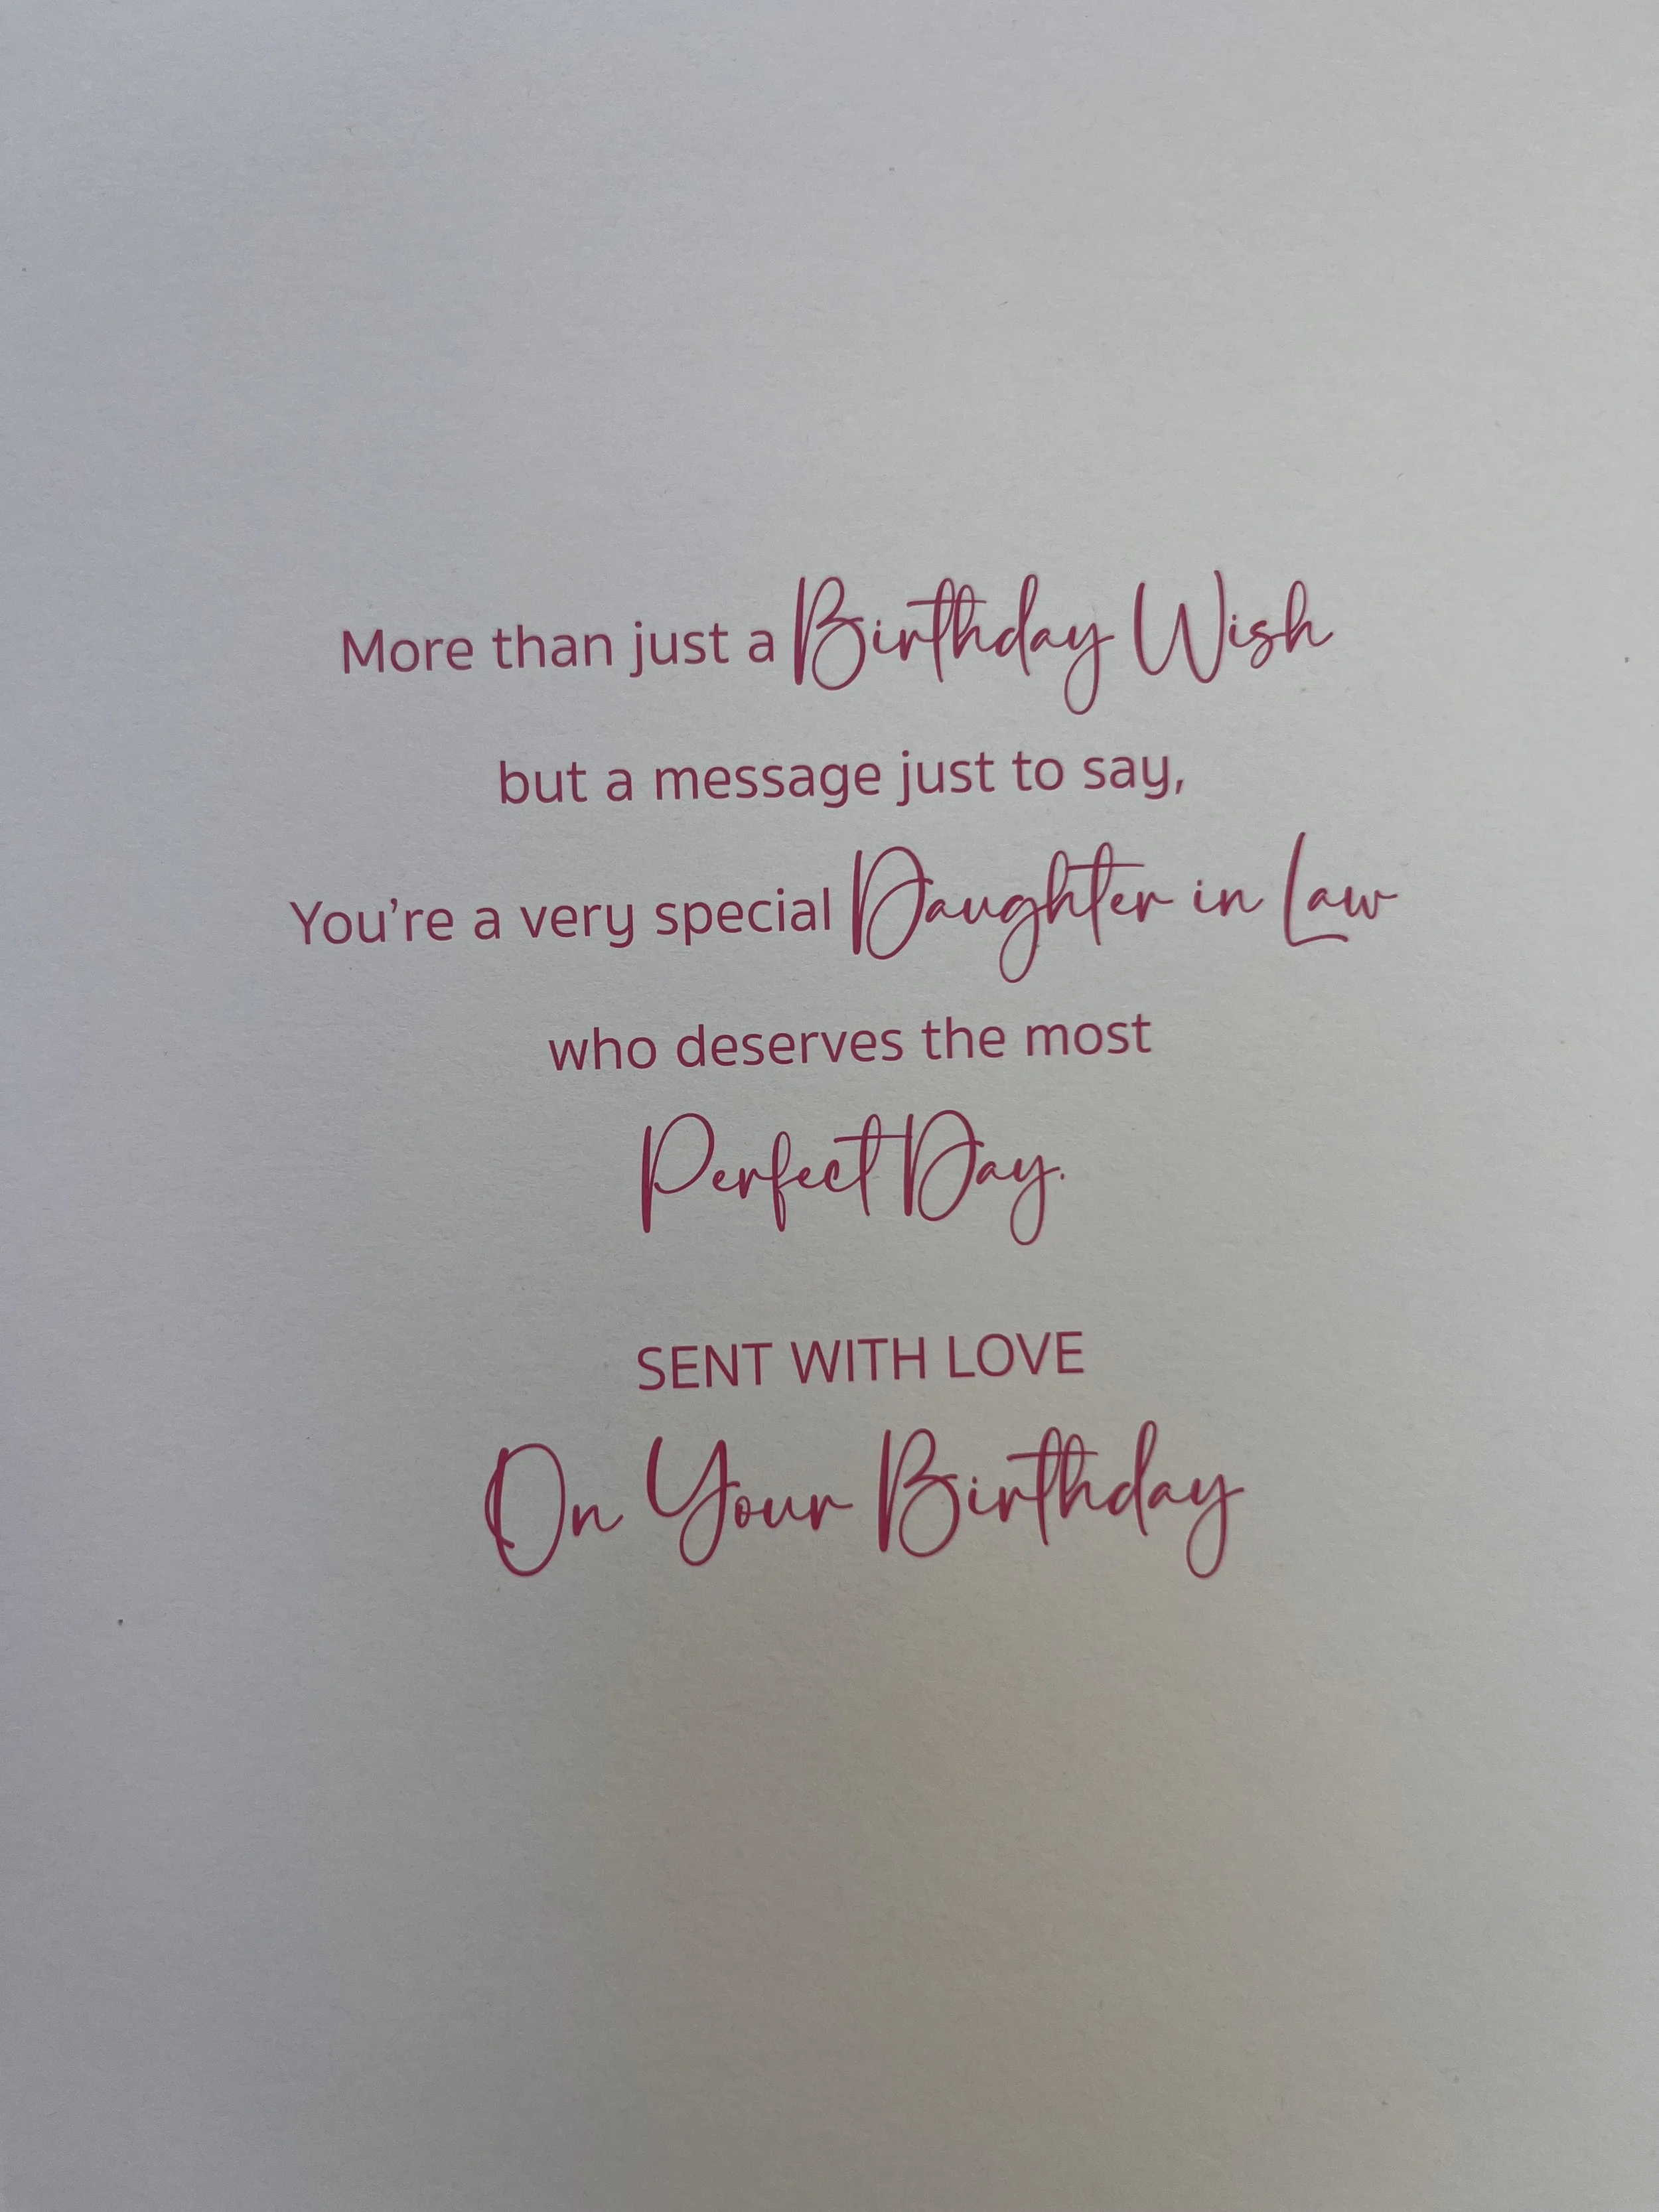 More than just a Birthday Wish
but a message just to say,
You’re a very special Daughter in Law
who deserves the most
Perfect Day.
SENT WITH LOVE
On Your Birthday